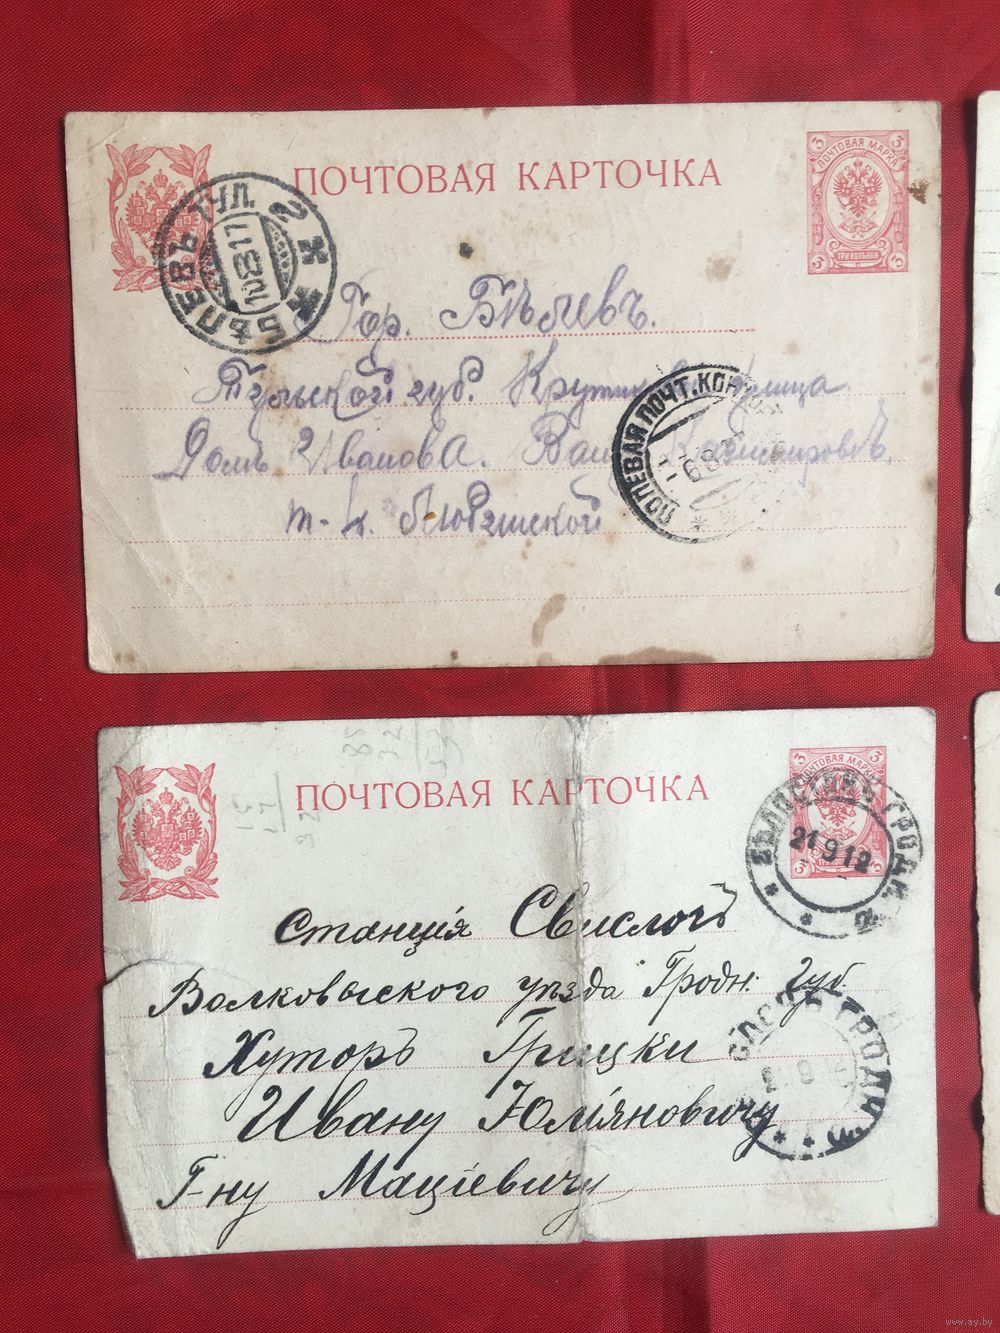 ПОЧТОВАЯ КАРТОЧКА
3 3
ПОЧТОВАЯ МАРКА
ТРИ КОПѢЙКИ
3 3
БѢЛЕВЪ ТУЛ. 2
10 8 17
Гор. Бѣлевъ.
Тульской губ. улица
Домъ Иванова.
ПОЛЕВАЯ ПОЧТ. КОНТОРА
6 8
ПОЧТОВАЯ КАРТОЧКА
3 3
ПОЧТОВАЯ МАРКА
БѢЛОСТОКЪ ГРОДН.
21 9 12
Станція Свислочь
Волковыского уѣзда Гродн. Губ.
Хуторъ Грицки
Ивану Юліяновичу
Г-ну Мацiевичу
ГРОДН
9 12
www.ay.by